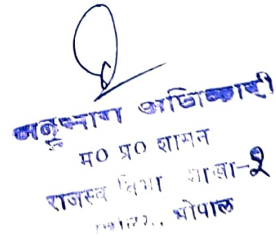 अनुभाग अधिकारी
म० प्र० शासन
राजस्व विभाग शाखा-2
भोपाल